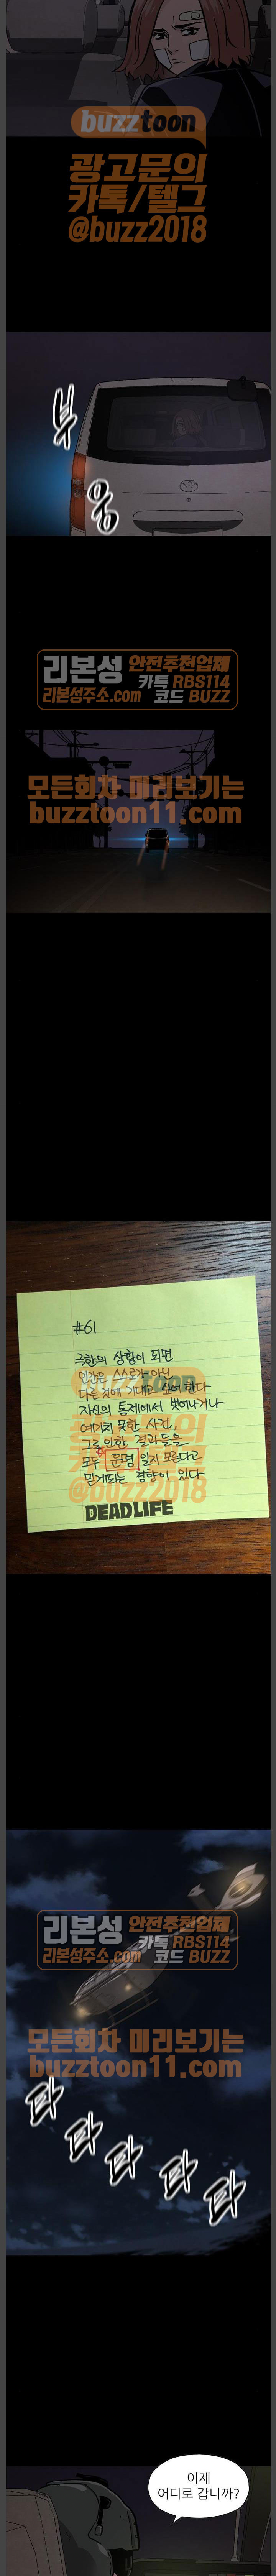 buzztoon
광고문의
카톡/텔그
@buzz2018
부
웅
리본성 안전추천업체
카톡 RBS114
리본성주소.com 코드 BUZZ
모든회차 미리보기는
buzztoon11.com
#61
극한의 상황이 되면
인간은 스스로가 아닌
다른 것에 기대고 싶어 한다
자신의 통제에서 벗어나거나
예기치 못한 사건,
그로 인한 결과들을
모두 운명 일지 모른다고
믿게되는 경향이 있다
@buzz2018
DEAD LIFE
리본성 안전추천업체
카톡 RBS114
리본성주소.com 코드 BUZZ
모든회차 미리보기는
buzztoon11.com
타
타
타
타
타
이제
어디로 갑니까?